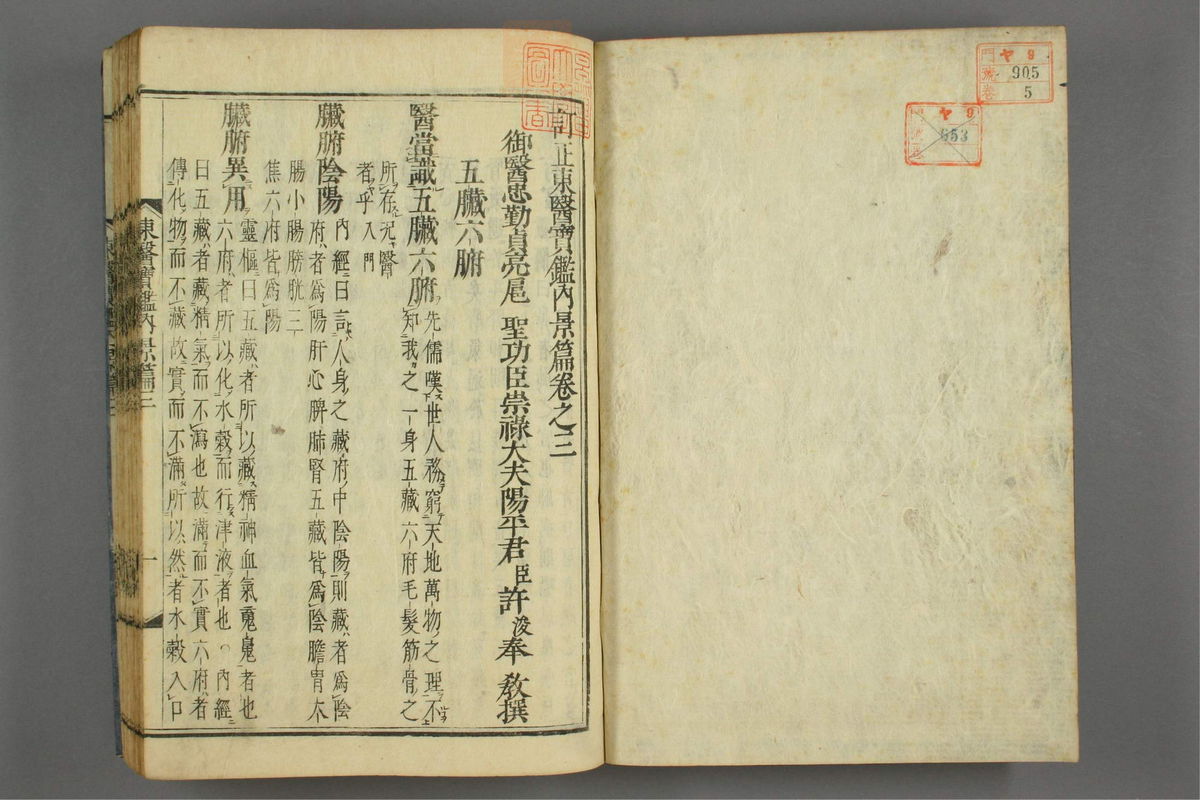 ヤ9
門
905
5
卷
ヤ9
653
訂正東醫寶鑑內景篇卷之三
御醫忠勤貞亮扈 聖功臣崇祿大夫陽平君臣許浚奉 敎撰
五臟六腑
醫當識五臟六腑 先儒嘆世人務窮天地萬物之理不
知我之一身五藏六府毛髮筋骨之
所存況醫
者乎入門
臟腑陰陽 內經曰言人身之藏府中陰陽則藏者爲陰
府者爲陽肝心脾肺腎五藏皆爲陰膽胃大
腸小腸膀胱三
焦六府皆爲陽
臟腑異用 靈樞曰五藏者所以藏精神血氣魂魄者也
六府者所以化水穀而行津液者也○內經
曰五藏者藏精氣而不瀉也故滿而不實六府者
傳化物而不藏故實而不滿所以然者水穀入口
東醫寶鑑內景篇三
一